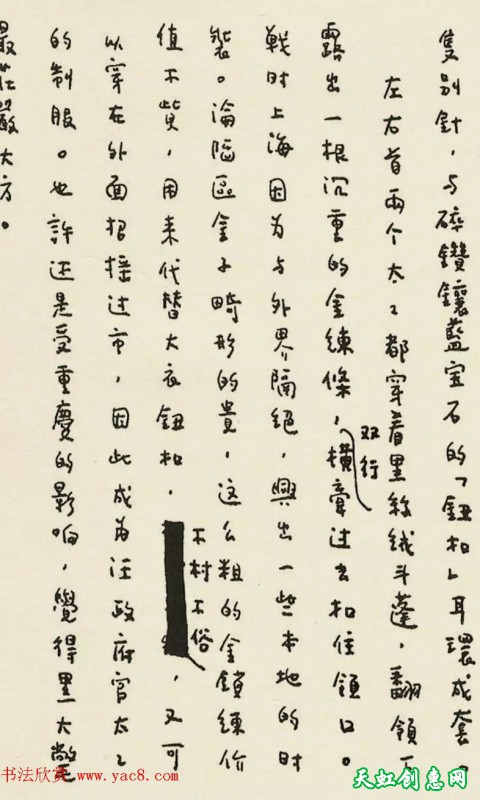 隻别針，与碎鑽鑲藍宝石的「鈕扣」耳環成套。
左右首兩个太〻都穿着黑絲絨斗蓬，翻領下
露出一根沉重的金鍊條，横䆲过去扣住領口。
双行
戰时上海因为与外界隔絕，興出一些本地的时
裝。淪陷區金子畸形的貴，这么粗的金鎖鍊价
值不貲，用来代替大衣鈕扣，不村不俗，又可
以穿在外面招揺过市，因此成为汪政府官太〻
的制服。也許还是受重慶的影响，覺得黑大氅
最莊嚴大方。
书法欣赏
www.yac8.com
天虹创惠网